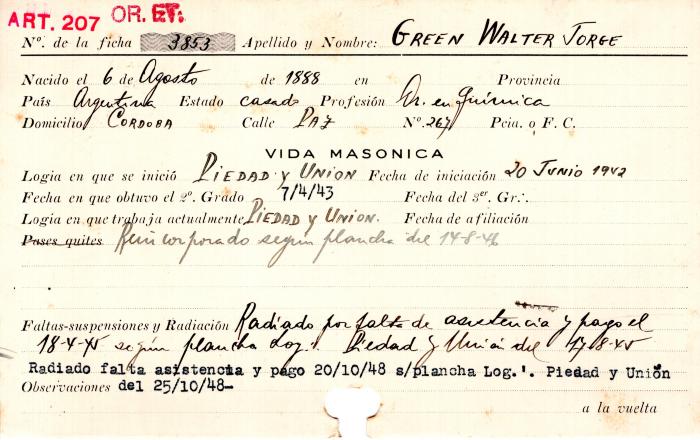 ART. 207 OR. ET.
Nº. de la ficha 3853 Apellido y Nombre: GREEN WALTER JORGE
Nacido el 6 de Agosto de 1888 en Provincia
País Argentina Estado casado Profesión Dr. en Química
Domicilio CORDOBA Calle PAZ Nº. 267 Pcia. o F. C.
VIDA MASONICA
Logia en que se inició PIEDAD y UNION Fecha de iniciación 20 JUNIO 1942
Fecha en que obtuvo el 2º. Grado 7/4/43 Fecha del 3er. Gr∴
Logia en que trabaja actualmente PIEDAD y UNION. Fecha de afiliación
Pases quites Reincorporado según plancha del 14-8-46
Faltas-suspensiones y Radiación Radiado por falta de asistencia y pago el
18-4-45 según plancha Log∴ Piedad y Unión del 17-8-45
Radiado falta asistencia y pago 20/10/48 s/plancha Log.'. Piedad y Unión
Observaciones del 25/10/48-
a la vuelta